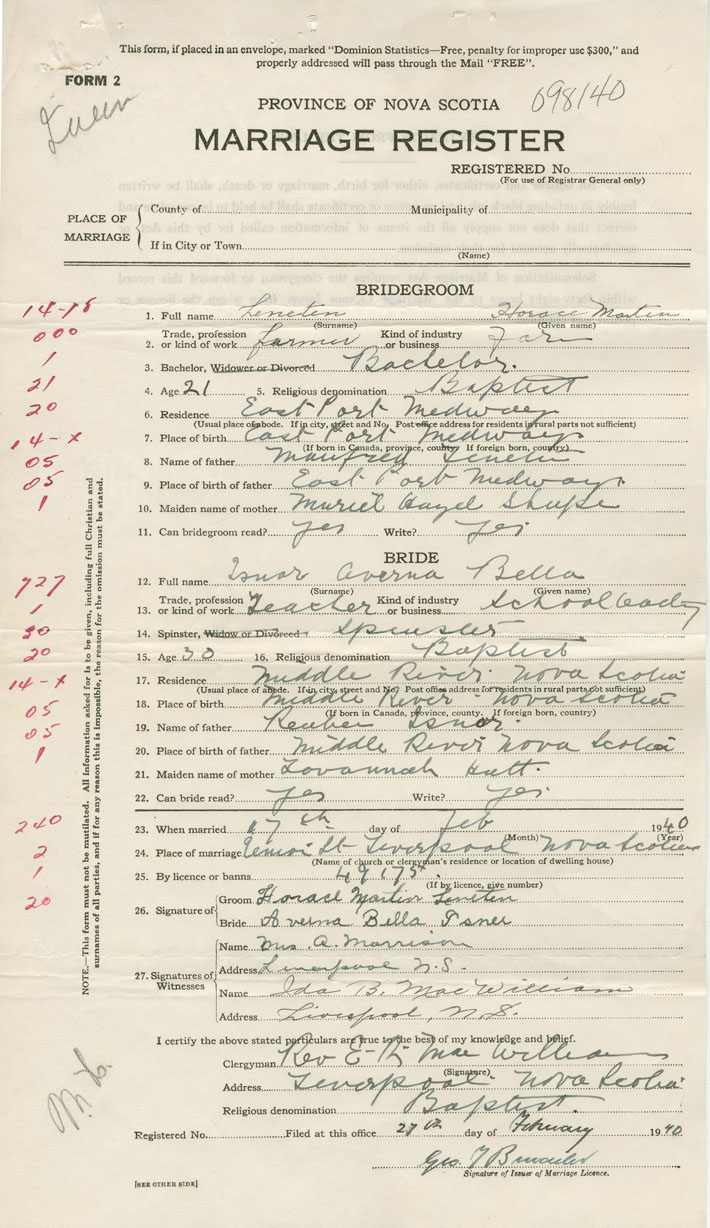 This form, if placed in an envelope, marked "Dominion Statistics—Free, penalty for improper use $300," and
properly addressed will pass through the Mail "FREE".
FORM 2
Queen
098140
PROVINCE OF NOVA SCOTIA
MARRIAGE REGISTER
REGISTERED No.
(For use of Registrar General only)
PLACE OF MARRIAGE
County of Municipality of
If in City or Town
(Name)
BRIDEGROOM
14-18
1. Full name Horace Martin
(Surname) (Given name)
000
2. Trade, profession or kind of work Farmer Kind of industry or business Far
1
3. Bachelor, Widower or Divorced Bachelor.
21
4. Age 21 5. Religious denomination Baptist
20
6. Residence East Port Medway
(Usual place of abode. If in city, street and No. Post office address for residents in rural parts not sufficient)
14-x
7. Place of birth East Port Medway
(If born in Canada, province, county. If foreign born, country)
05
8. Name of father Manfred
05
9. Place of birth of father East Port Medway
1
10. Maiden name of mother Muriel Hazel Shupe
11. Can bridegroom read? yes Write? yes
BRIDE
12. Full name Isnor Averna Bella
(Surname) (Given name)
727
1
13. Trade, profession or kind of work Teacher Kind of industry or business School
30
14. Spinster, Widow or Divorced Spinster
20
15. Age 30 16. Religious denomination Baptist
14-x
17. Residence Middle River Nova Scotia
(Usual place of abode. If in city, street and No. Post office address for residents in rural parts not sufficient)
05
18. Place of birth Middle River Nova Scotia
(If born in Canada, province, county. If foreign born, country)
05
19. Name of father Reuben Isnor.
1
20. Place of birth of father Middle River Nova Scotia
21. Maiden name of mother Lovannah Hutt.
22. Can bride read? yes Write? yes
240
23. When married 17th day of Feb 1940
(Month) (Year)
2
24. Place of marriage Union St Liverpool Nova Scotia
(Name of church or clergyman's residence or location of dwelling house)
1
25. By licence or banns 49175
(If by licence, give number)
20
26. Signature of
Groom Horace Martin
Bride Averna Bella Isner
27. Signatures of Witnesses
Name Mrs. A. Morrison
Address Liverpool N.S.
Name Ida B. MacWilliam
Address Liverpool, N.S.
I certify the above stated particulars are true to the best of my knowledge and belief.
Clergyman Rev MacWilliam
(Signature)
Address Liverpool Nova Scotia
Religious denomination Baptist.
Registered No. Filed at this office 27th day of February 1940
Geo
Signature of Issuer of Marriage Licence.
[SEE OTHER SIDE]
NOTE.—This form must not be mutilated. All information asked for is to be given, including full Christian and
surnames of all parties, and if for any reason this is impossible, the reason for the omission must be stated.